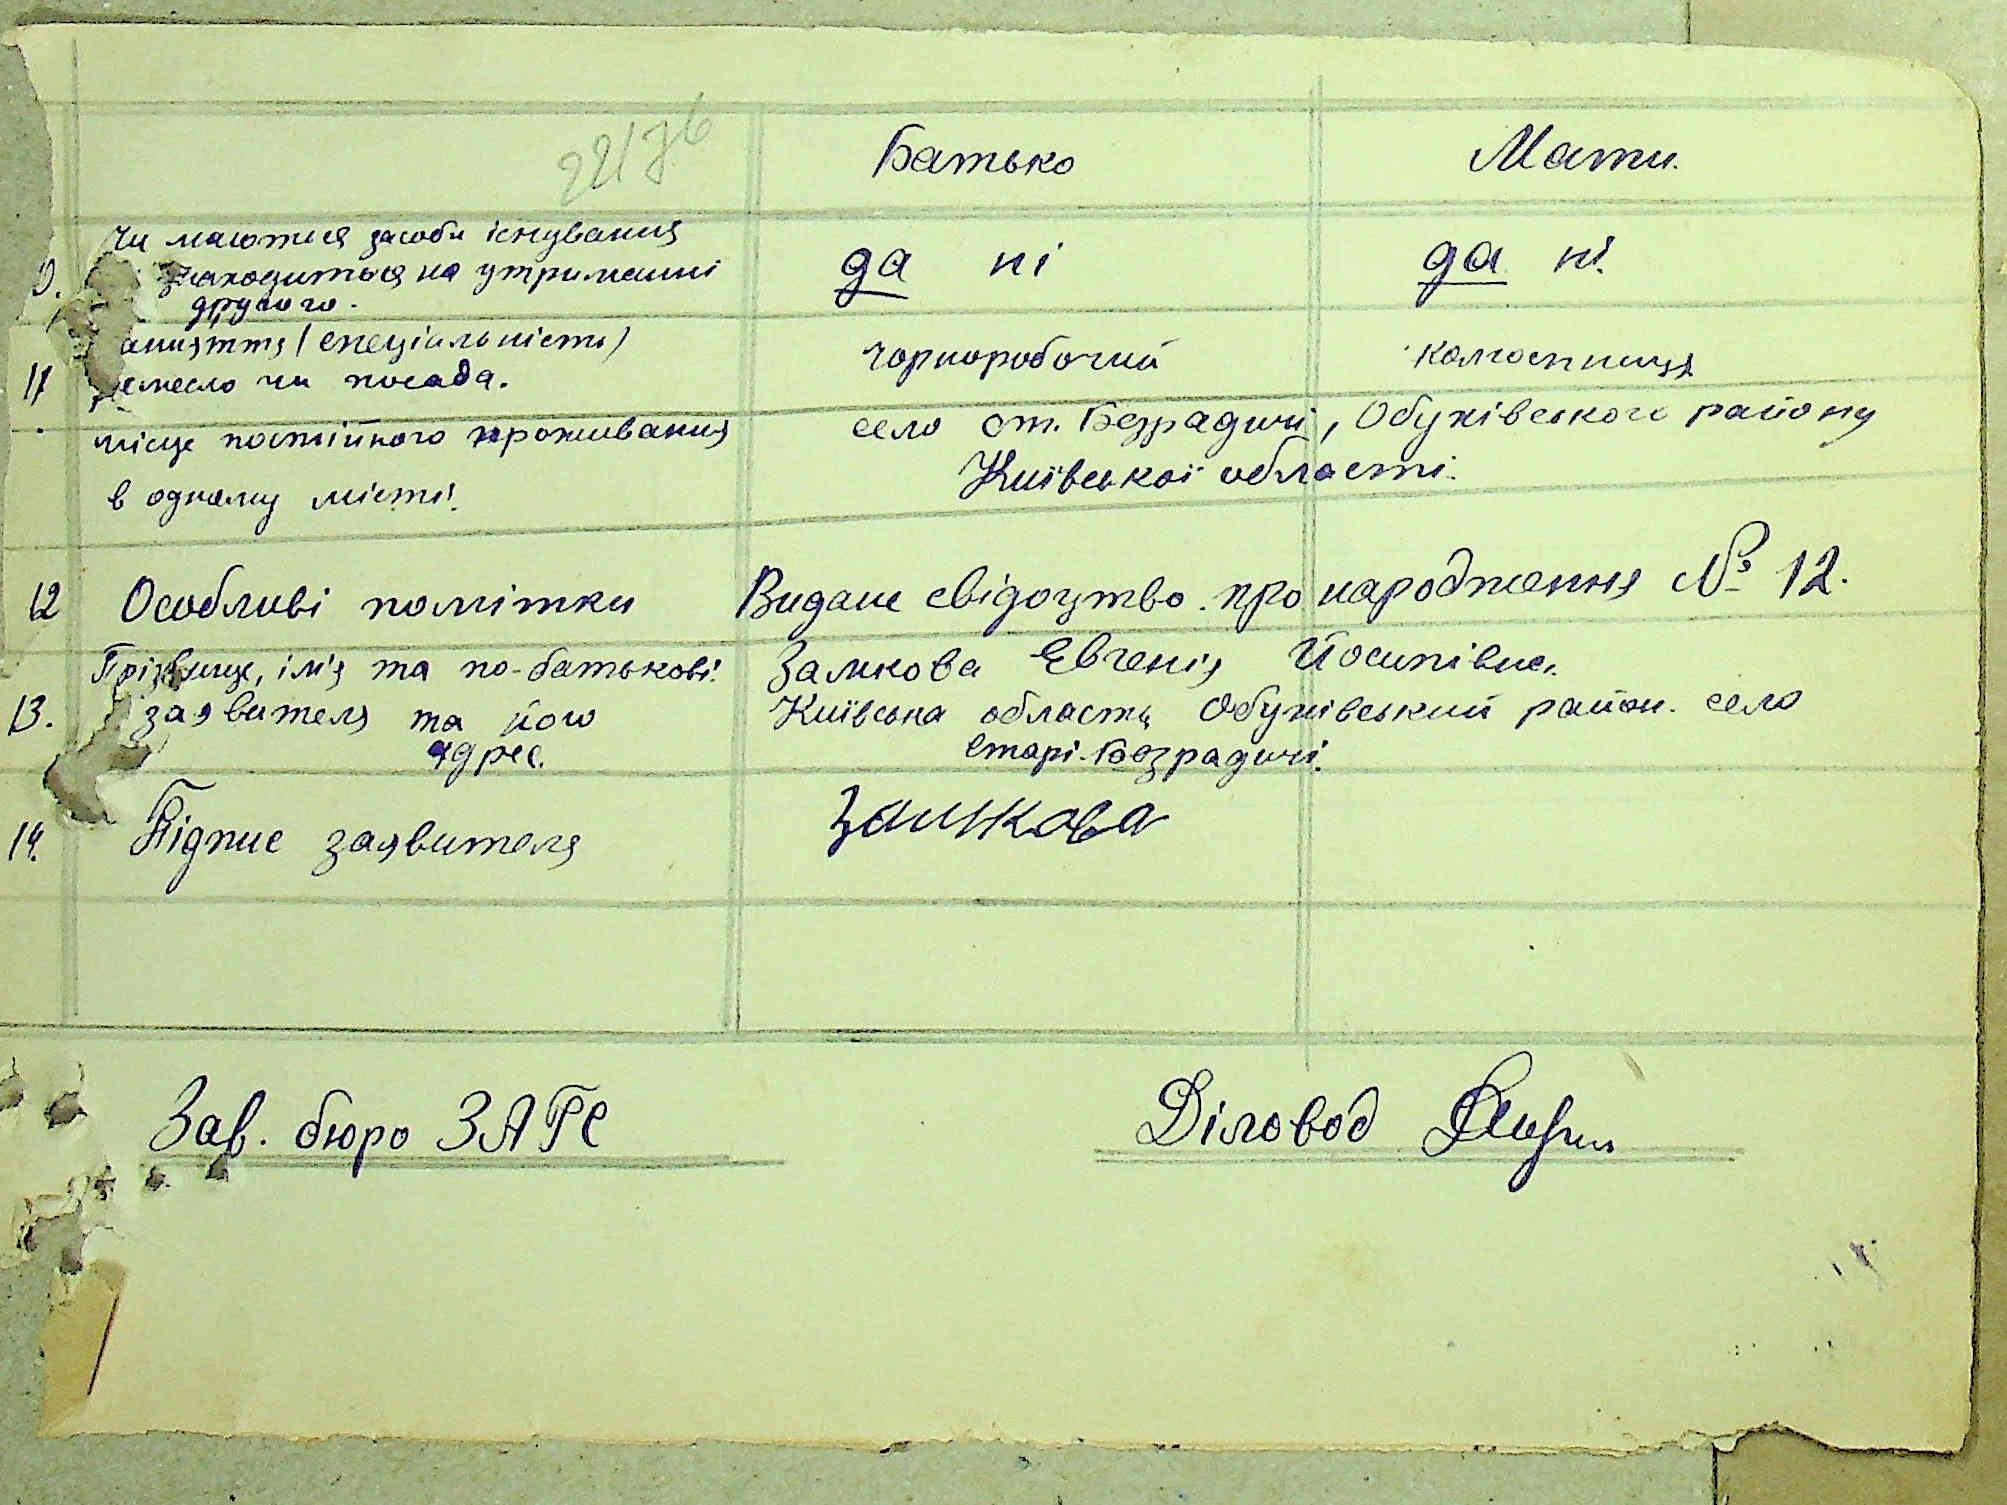 22/76
Батько Мати.
Чи маються засоби існування
10. знаходиться на утриманні да ні да ні.
другого.
аняття (спеціальність)
11 емесло чи посада. чорноробочий колгоспниця
місце постійного проживання село ст. Безрадичі, Обухівського району
в одному місті. Київської області.
12 Особливі помітки Видане свідоцтво про народження № 12.
Прізвище, ім'я та по-батькові Замкова Євгенія Йосипівна.
13. заявителя та його Київська область Обухівський район село
адрес. Старі-Безрадичі.
14. Підпис заявителя Замкова
Зав. бюро ЗАГС Діловод